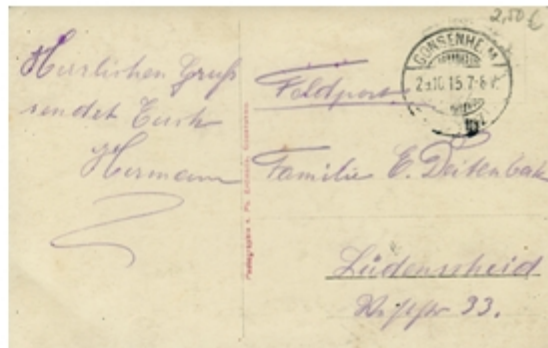 2,50 €
Herzlichen Gruß
sendet Euch
Hermann
GONSENHEIM
10.15.7-8
Feldpost
Familie E. Deitenbach
Lüdenscheid
33.